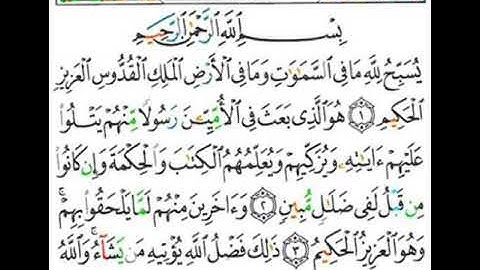 بِسْمِ ٱللَّهِ ٱلرَّحْمَٰنِ ٱلرَّحِيمِ
يُسَبِّحُ لِلَّهِ مَا فِى ٱلسَّمَٰوَٰتِ وَمَا فِى ٱلْأَرْضِ ٱلْمَلِكِ ٱلْقُدُّوسِ ٱلْعَزِيزِ
ٱلْحَكِيمِ ١ هُوَ ٱلَّذِى بَعَثَ فِى ٱلْأُمِّيِّۦنَ رَسُولًا مِّنْهُمْ يَتْلُوا۟
عَلَيْهِمْ ءَايَٰتِهِۦ وَيُزَكِّيهِمْ وَيُعَلِّمُهُمُ ٱلْكِتَٰبَ وَٱلْحِكْمَةَ وَإِن كَانُوا۟
مِن قَبْلُ لَفِى ضَلَٰلٍ مُّبِينٍ ٢ وَءَاخَرِينَ مِنْهُمْ لَمَّا يَلْحَقُوا۟ بِهِمْ ۚ
وَهُوَ ٱلْعَزِيزُ ٱلْحَكِيمُ ٣ ذَٰلِكَ فَضْلُ ٱللَّهِ يُؤْتِيهِ مَن يَشَآءُ ۚ وَٱللَّهُ